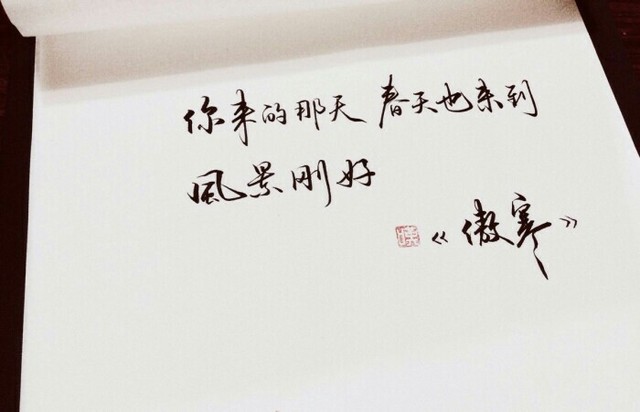 你来的那天 春天也来到
風景刚好
《傲寒》